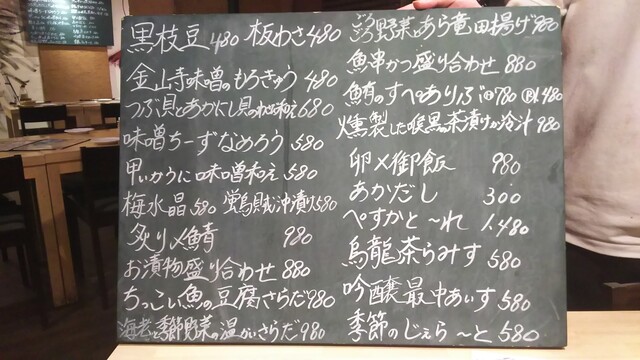 黒枝豆480 板わさ480
金山寺味噌のもろきゅう 480
つぶ貝とあかにし貝のぬた和え680
味噌ちーずなめろう 580
甲いかうに味噌和え 580
梅水晶580 蛍烏賊沖漬け580
炙り〆鯖 980
お漬物盛り合わせ 880
ちっこい魚の豆腐さらだ980
海老と季節野菜の温かいさらだ980
ごろごろ野菜とあら竜田揚げ980
魚串かつ盛り合わせ 880
鮪のすぺありぶ 780 1.480
燻製した喉黒の茶漬けか冷汁 980
卵〆御飯 980
あかだし 300
ぺすかと〜れ 1.480
烏龍茶らみす 580
吟醸最中あいす 580
季節のじぇら〜と 580